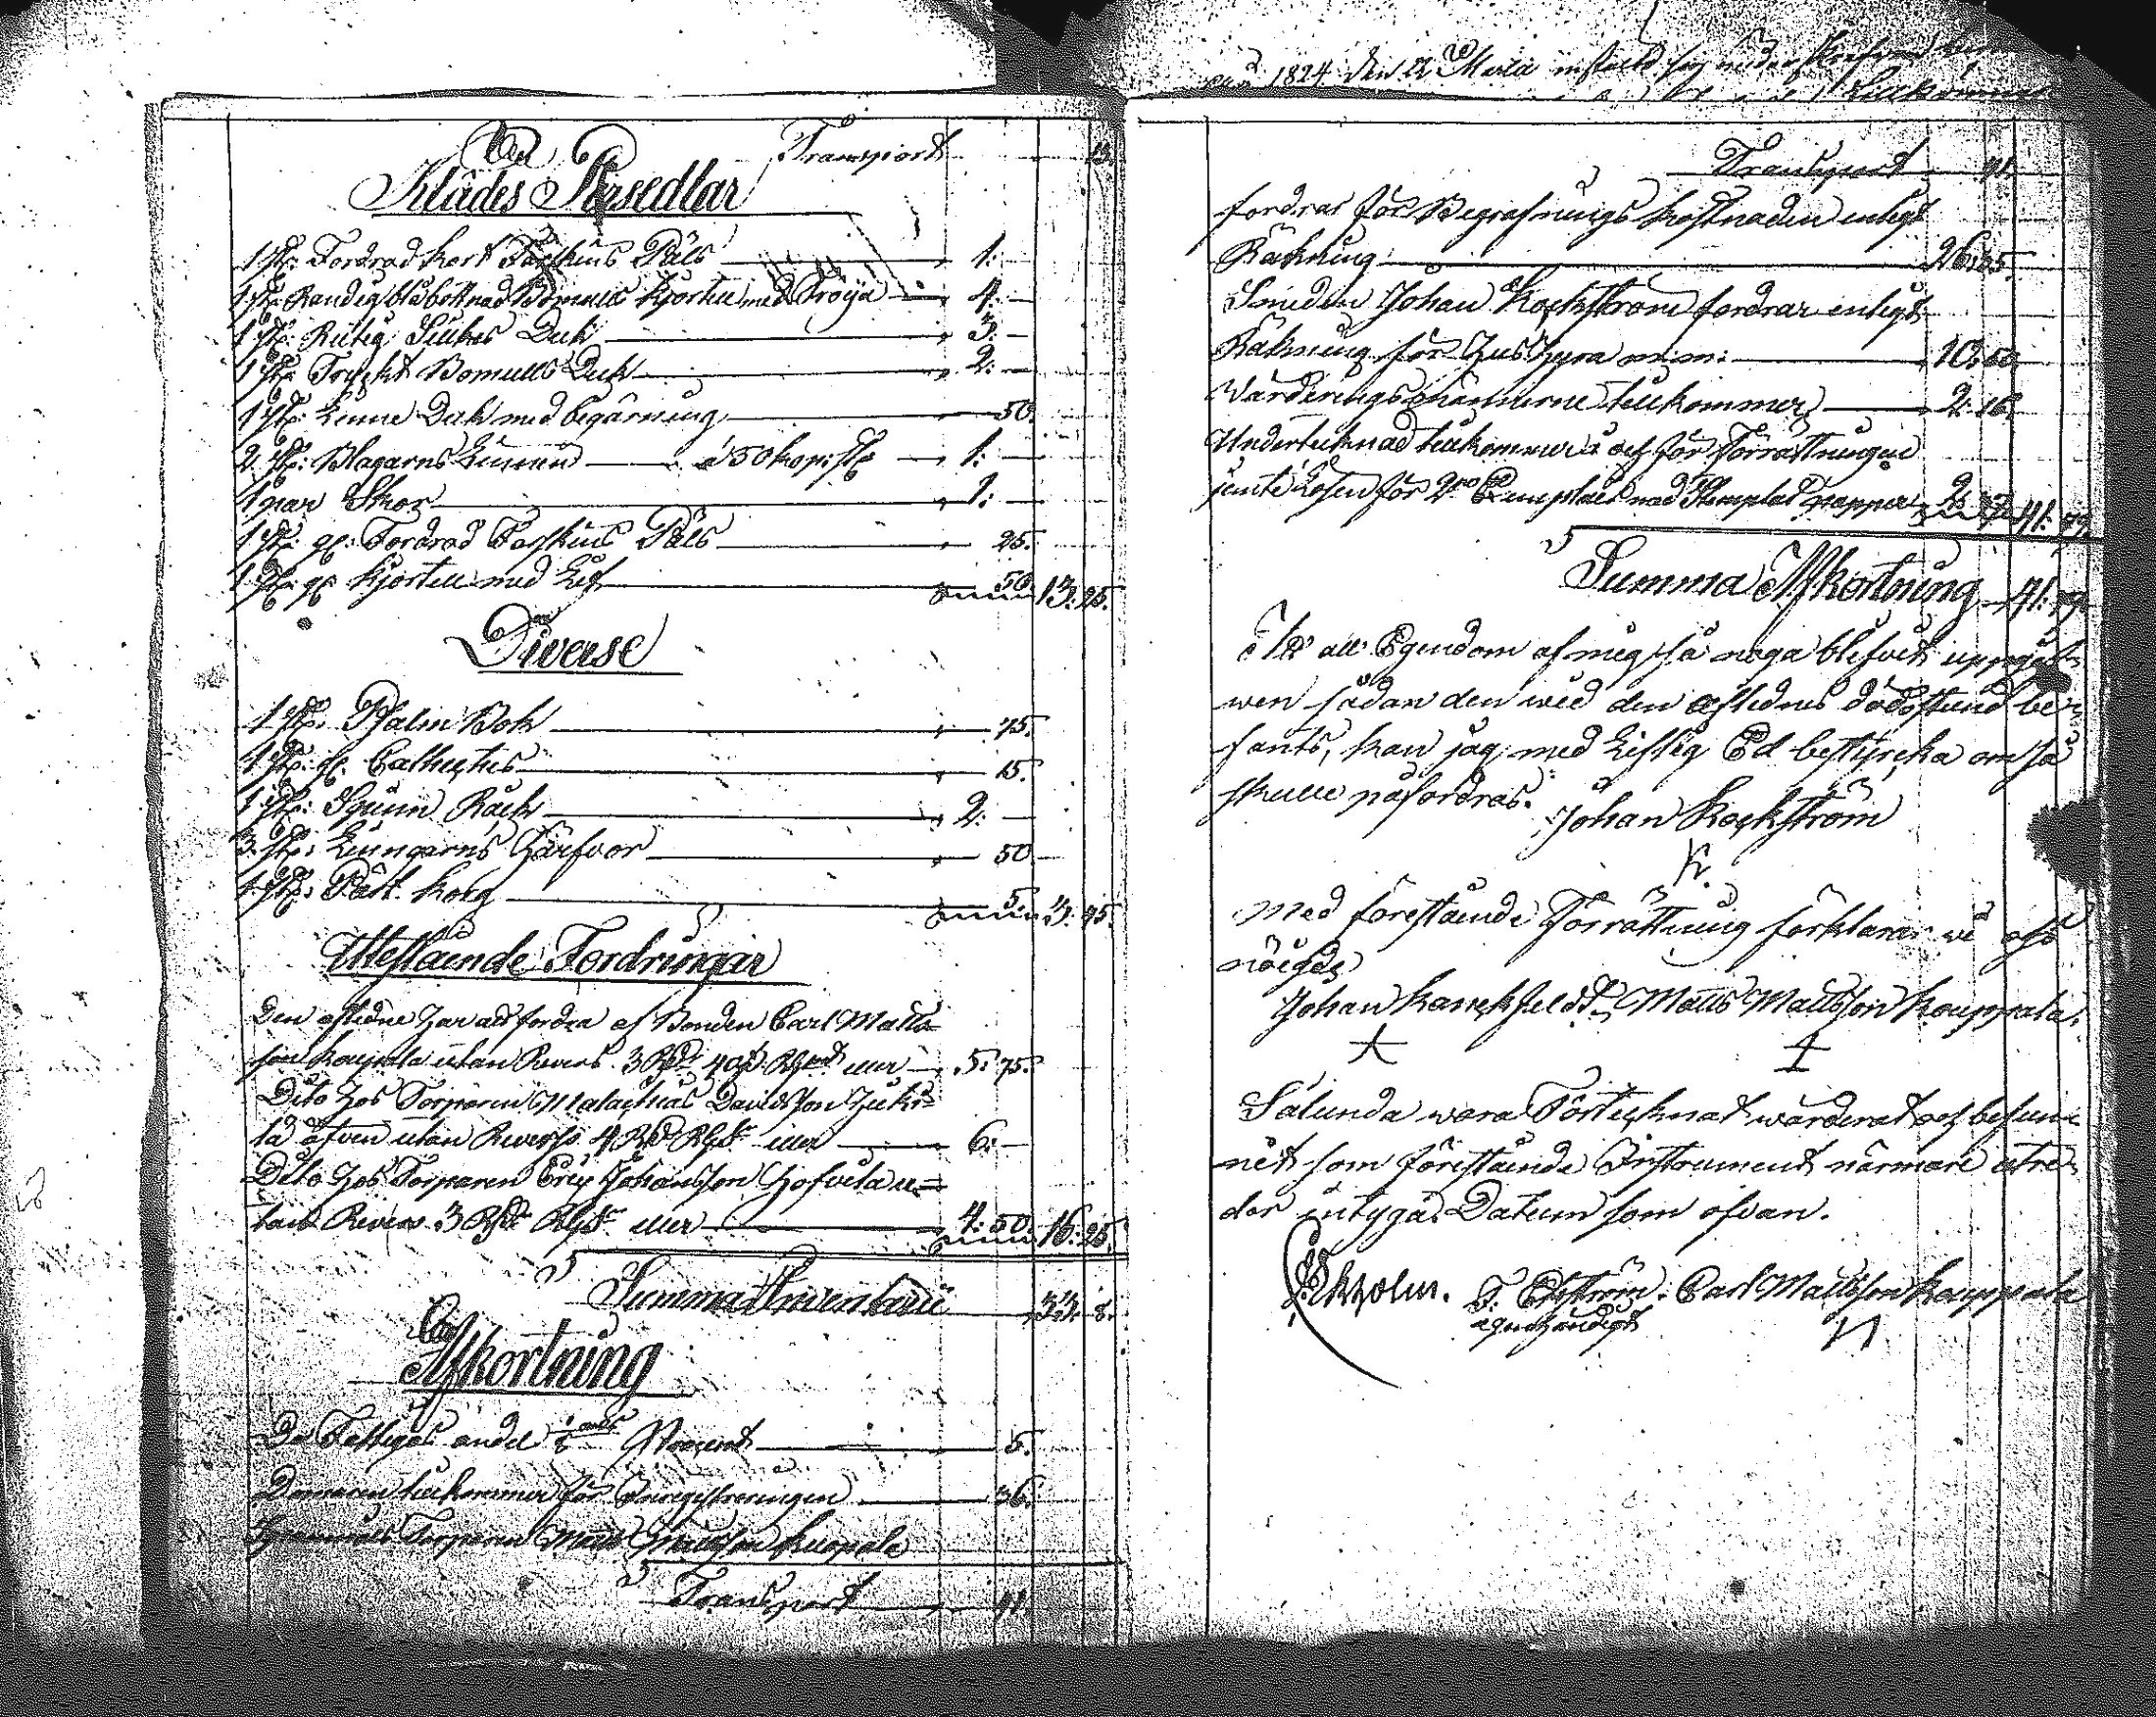 Transport 13.
Klädes Persedlar
1 st: Fordrad kort Fårskins Päls 1: —
1 st: Randig blåbottnad Bomulls Kjortell med Tröija 4: —
1 st: Rutig Silkes Duk 3: —
1 st: Tryckt Bomulls Duk 2: —
1 st: Linne Duk med begärning 50.
2 st: Blagarns Linnen à 50 kop: st: 1: —
1 par Skor 1: —
1 st: gl: Fordrad Fårskins Päls 25.
1 st: gl: Kjortell med Lif 50. 13: 25.
Diverse
1 st: Psalm Bok 75.
1 st: gl: Cathectus 15.
1 st: Spinn Råck 2: —
3 st: Lingarns Härfvor 50
1 st: Pärt korg 5. 3: 45.
Utestående Fordringar
Den aflidne har att fordra af Bonden Carl Matts-
son Kauppala utan Revers 3 Rd 40 s: Rgs eller 5: 75.
Dito hos Torparen Malachias Davidsson
la äfven utan Reverss 4 Rd Rgs eller 6: —
Dito hos Torparen Eric Johansson u-
tan Revers 3 Rd Rgs eller 4: 50. 16: 25.
Summa Inventarii 33: 8.
Afkortning
De Fattigas andel Procent 5.
Domaren tillkommer för Inregistreringen 36.
Torparen Matts Kuopala
Transport 41.
1824 den 22 Martii instält sig underskrefven
Transport 41.
fordrar för Begrafnings kostnaden enligt
Räkning 26: 25.
Smeden Johan Kockström fordrar enligt
Räkning för Hushyra m: m: 10: 50.
Värderingsmännerne tillkommer 2: 16.
Undertecknad tillkommer och för Förrättningen
jemte Lösen för 2ne Exemplaer med Stemplad papper 2: 41: 79.
Summa Afkortning 41: 79.
At all Egendom af mig så noga blifvit uppgif-
wen sådan den wid den aflednes dödsstund be-
fants, kan jag med Liflig Ed bestyrcka om så
skulle påfordras.
Johan Kockström
K.
Med förestående Förrättning förklarar wi oss
nöigde
Johan Matts Mattsson Kauppala.
Sålunda wara Förtecknat wärderat och befun-
nit som förestående Instrument närmare utre-
der intyga. Datum som ofvan.
Ekholm. Carl Mattsson Kauppala
egenhändigt